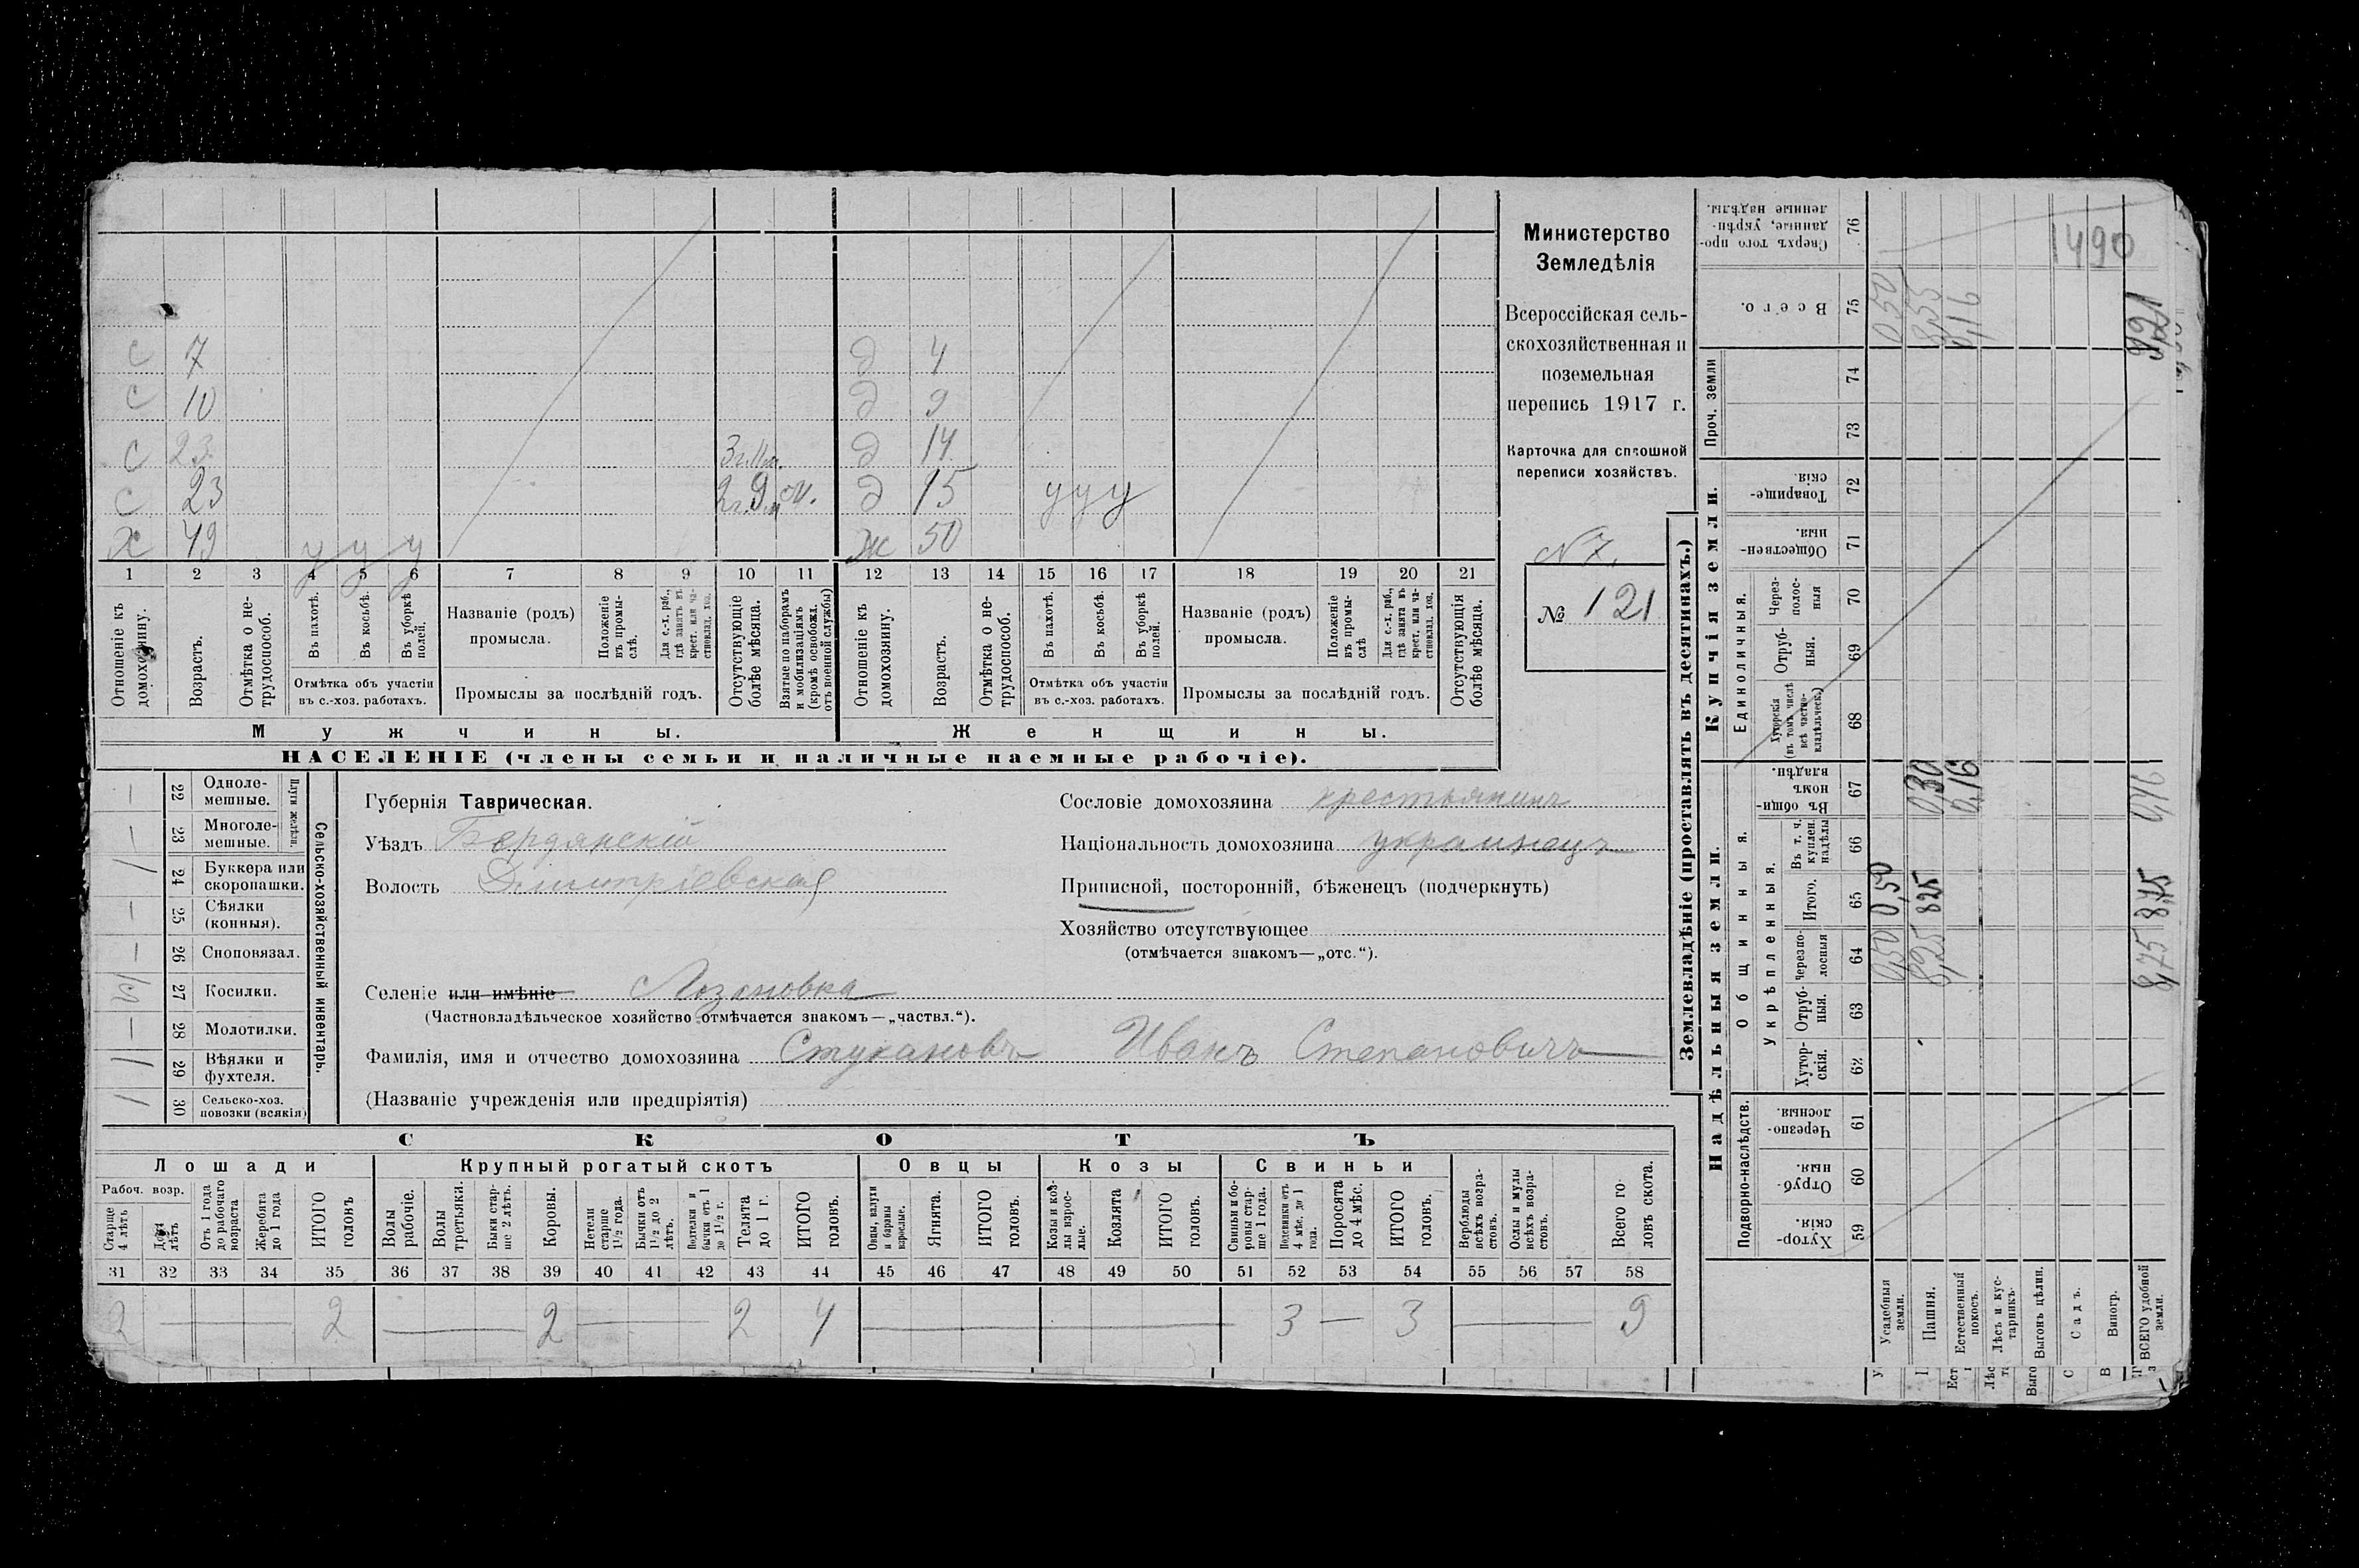 Министерство
Земледѣлія
Всероссійская сель-
скохозяйственная и
поземельная
перепись 1917 г.
Карточка для сплошной
переписи хозяйствъ.
N 7.
№ 121
С 7
С 10
С 23 3 г. 11 м.
С 23 2 г. 9 м
Х 49 у у у
Д 4
Д 9
Д 14
Д 15 у у у
Ж 50
1 2 3 4 5 6 7 8 9 10 11 12 13 14 15 16 17 18 19 20 21
Отношеніе къ домохозяину.
Возрастъ.
Отмѣтка о не-трудоспособ.
Въ пахотѣ.
Въ косьбѣ.
Въ уборкѣ полей.
Отмѣтка объ участіи
въ с.-хоз. работахъ.
Названіе (родъ)
промысла.
Положеніе въ промы-слѣ.
Для с.-х. раб., гдѣ занятъ въ крест. или ча-стновлад. хоз.
Промыслы за послѣдній годъ.
Отсутствующіе болѣе мѣсяца.
Взятые по наборамъ и мобилизаціямъ (кромѣ освобожд. отъ военной службы)
Отношеніе къ домохозяину.
Возрастъ.
Отмѣтка о не-трудоспособ.
Въ пахотѣ.
Въ косьбѣ.
Въ уборкѣ полей.
Отмѣтка объ участіи
въ с.-хоз. работахъ.
Названіе (родъ)
промысла.
Положеніе въ промы-слѣ
Для с.-х. раб., гдѣ занята въ крест. или ча-стновлад. хоз.
Промыслы за послѣдній годъ.
Отсутствующія болѣе мѣсяца.
Мужчины.
Женщины.
НАСЕЛЕНІЕ (члены семьи и наличные наемные рабочіе).
Сельско-хозяйственный инвентарь.
Плуги желѣзн.
— 22 Одноле-мешные.
— 23 Многоле-мешные.
1 24 Буккера или скоропашки.
— 25 Сѣялки (конныя).
— 26 Сноповязал.
27 Косилки.
— 28 Молотилки.
1 29 Вѣялки и фухтеля.
1 30 Сельско-хоз. повозки (всякія)
Губернія Таврическая.
Уѣздъ Бердянскій
Волость Дмитріевская
Селеніе или имѣніе Лозановка
(Частновладѣльческое хозяйство отмѣчается знакомъ—„частвл.“).
Фамилія, имя и отчество домохозяина Стукановъ Иванъ Степановичъ
(Названіе учрежденія или предпріятія)
Сословіе домохозяина крестьянинъ
Національность домохозяина украинецъ
Приписной, посторонній, бѣженецъ (подчеркнуть)
Хозяйство отсутствующее
(отмѣчается знакомъ—„отс.“).
СКОТЪ
Лошади
Крупный рогатый скотъ
Овцы
Козы
Свиньи
Рабоч. возр.
Старше 4 лѣтъ
До 4 лѣтъ
Отъ 1 года до рабочаго возраста
Жеребята до 1 года
ИТОГО головъ
Волы рабочіе.
Волы третьяки.
Быки стар-ше 2 лѣтъ.
Коровы.
Нетели старше 1½ года.
Бычки отъ 1½ до 2 лѣтъ.
Подтелки и бычки отъ 1 до 1½ г.
Телята до 1 г.
ИТОГО головъ.
Овцы, валухи и бараны взрослые.
Ягнята.
ИТОГО головъ.
Козы и коз-лы взрос-лые.
Козлята
ИТОГО головъ.
Свиньи и бо-ровы стар-ше 1 года.
Подсвинки отъ 4 мѣс. до 1 года.
Поросята до 4 мѣс.
ИТОГО головъ.
Верблюды всѣхъ возра-стовъ.
Ослы и мулы всѣхъ возра-стовъ.
Всего го-ловъ скота.
31 32 33 34 35 36 37 38 39 40 41 42 43 44 45 46 47 48 49 50 51 52 53 54 55 56 57 58
2 — 2 — 2 — 2 4 — 3 — 3 — 9
Землевладѣніе (проставлять въ десятинахъ.)
Надѣльныя земли.
Купчія земли.
Проч. земли
Подворно-наслѣдств.
Общинныя.
Укрѣпленныя.
Единоличныя.
Хутор-скія. 59
Отруб-ныя. 60
Черезпо-лосныя. 61
Хутор-скія. 62
Отруб-ныя. 63
Черезпо-лосныя 64
Итого. 65
Въ т. ч. куплен. надѣлы 66
Въ общи-номъ владѣн. 67
Хуторскія (въ томъ числѣ всѣ частно-владѣльческ.) 68
Отруб-ныя. 69
Через-полос-ныя 70
Обществен-ныя. 71
Товарище-скія. 72
73
74
Всего. 75
Сверхъ того про-данные, укрѣп-ленные надѣлы. 76
Усадебныя земли. 0,50 0,50 0,50
Пашня. 8,25 8,25 0,30 8,55
Естественный покосъ. 0,16 0,16
Лѣсъ и кус-тарникъ.
Выгонъ цѣлин.
Садъ.
Виногр.
ВСЕГО удобной земли. 8,75 8,75 0,46 9,21
1490